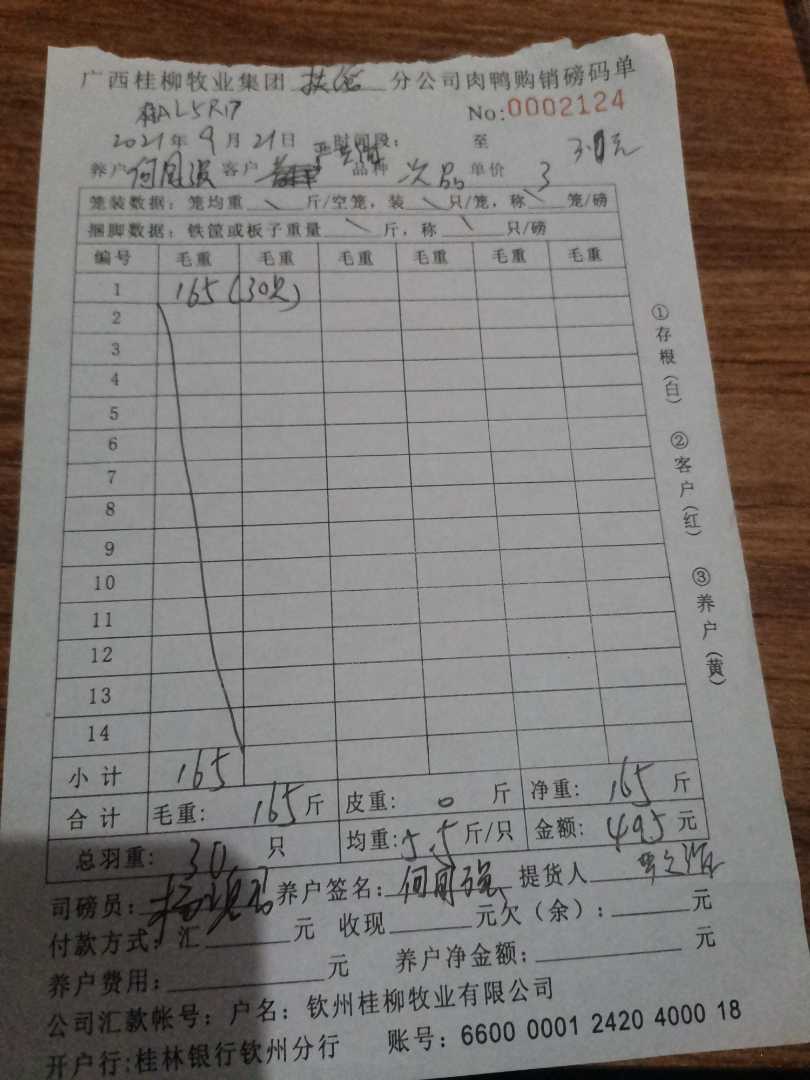 广西桂柳牧业集团 扶绥 分公司肉鸭购销磅码单
AL5R17 No:0002124
2021年9月21日 时间段: 至 3.0元
养户 何国强 客户 品种 次品 单价 3
笼装数据: 笼均重 \ 斤/空笼, 装 \ 只/笼, 称 \ 笼/磅
捆脚数据: 铁筐或板子重量 \ 斤, 称 \ 只/磅
编号 毛重 毛重 毛重 毛重 毛重 毛重
1 165(30只)
2
3
4
5
6
7
8
9
10
11
12
13
14
小计 165
合计 毛重: 165斤 皮重: 0 斤 净重: 165 斤
总羽重: 30 只 均重: 5.5斤/只 金额: 495元
司磅员: 养户签名: 何国强 提货人
付款方式: 汇 元 收现 元欠(余): 元
养户费用: 元 养户净金额: 元
公司汇款帐号: 户名: 钦州桂柳牧业有限公司
开户行:桂林银行钦州分行 账号: 6600 0001 2420 4000 18
①存根(白) ②客户(红) ③养户(黄)